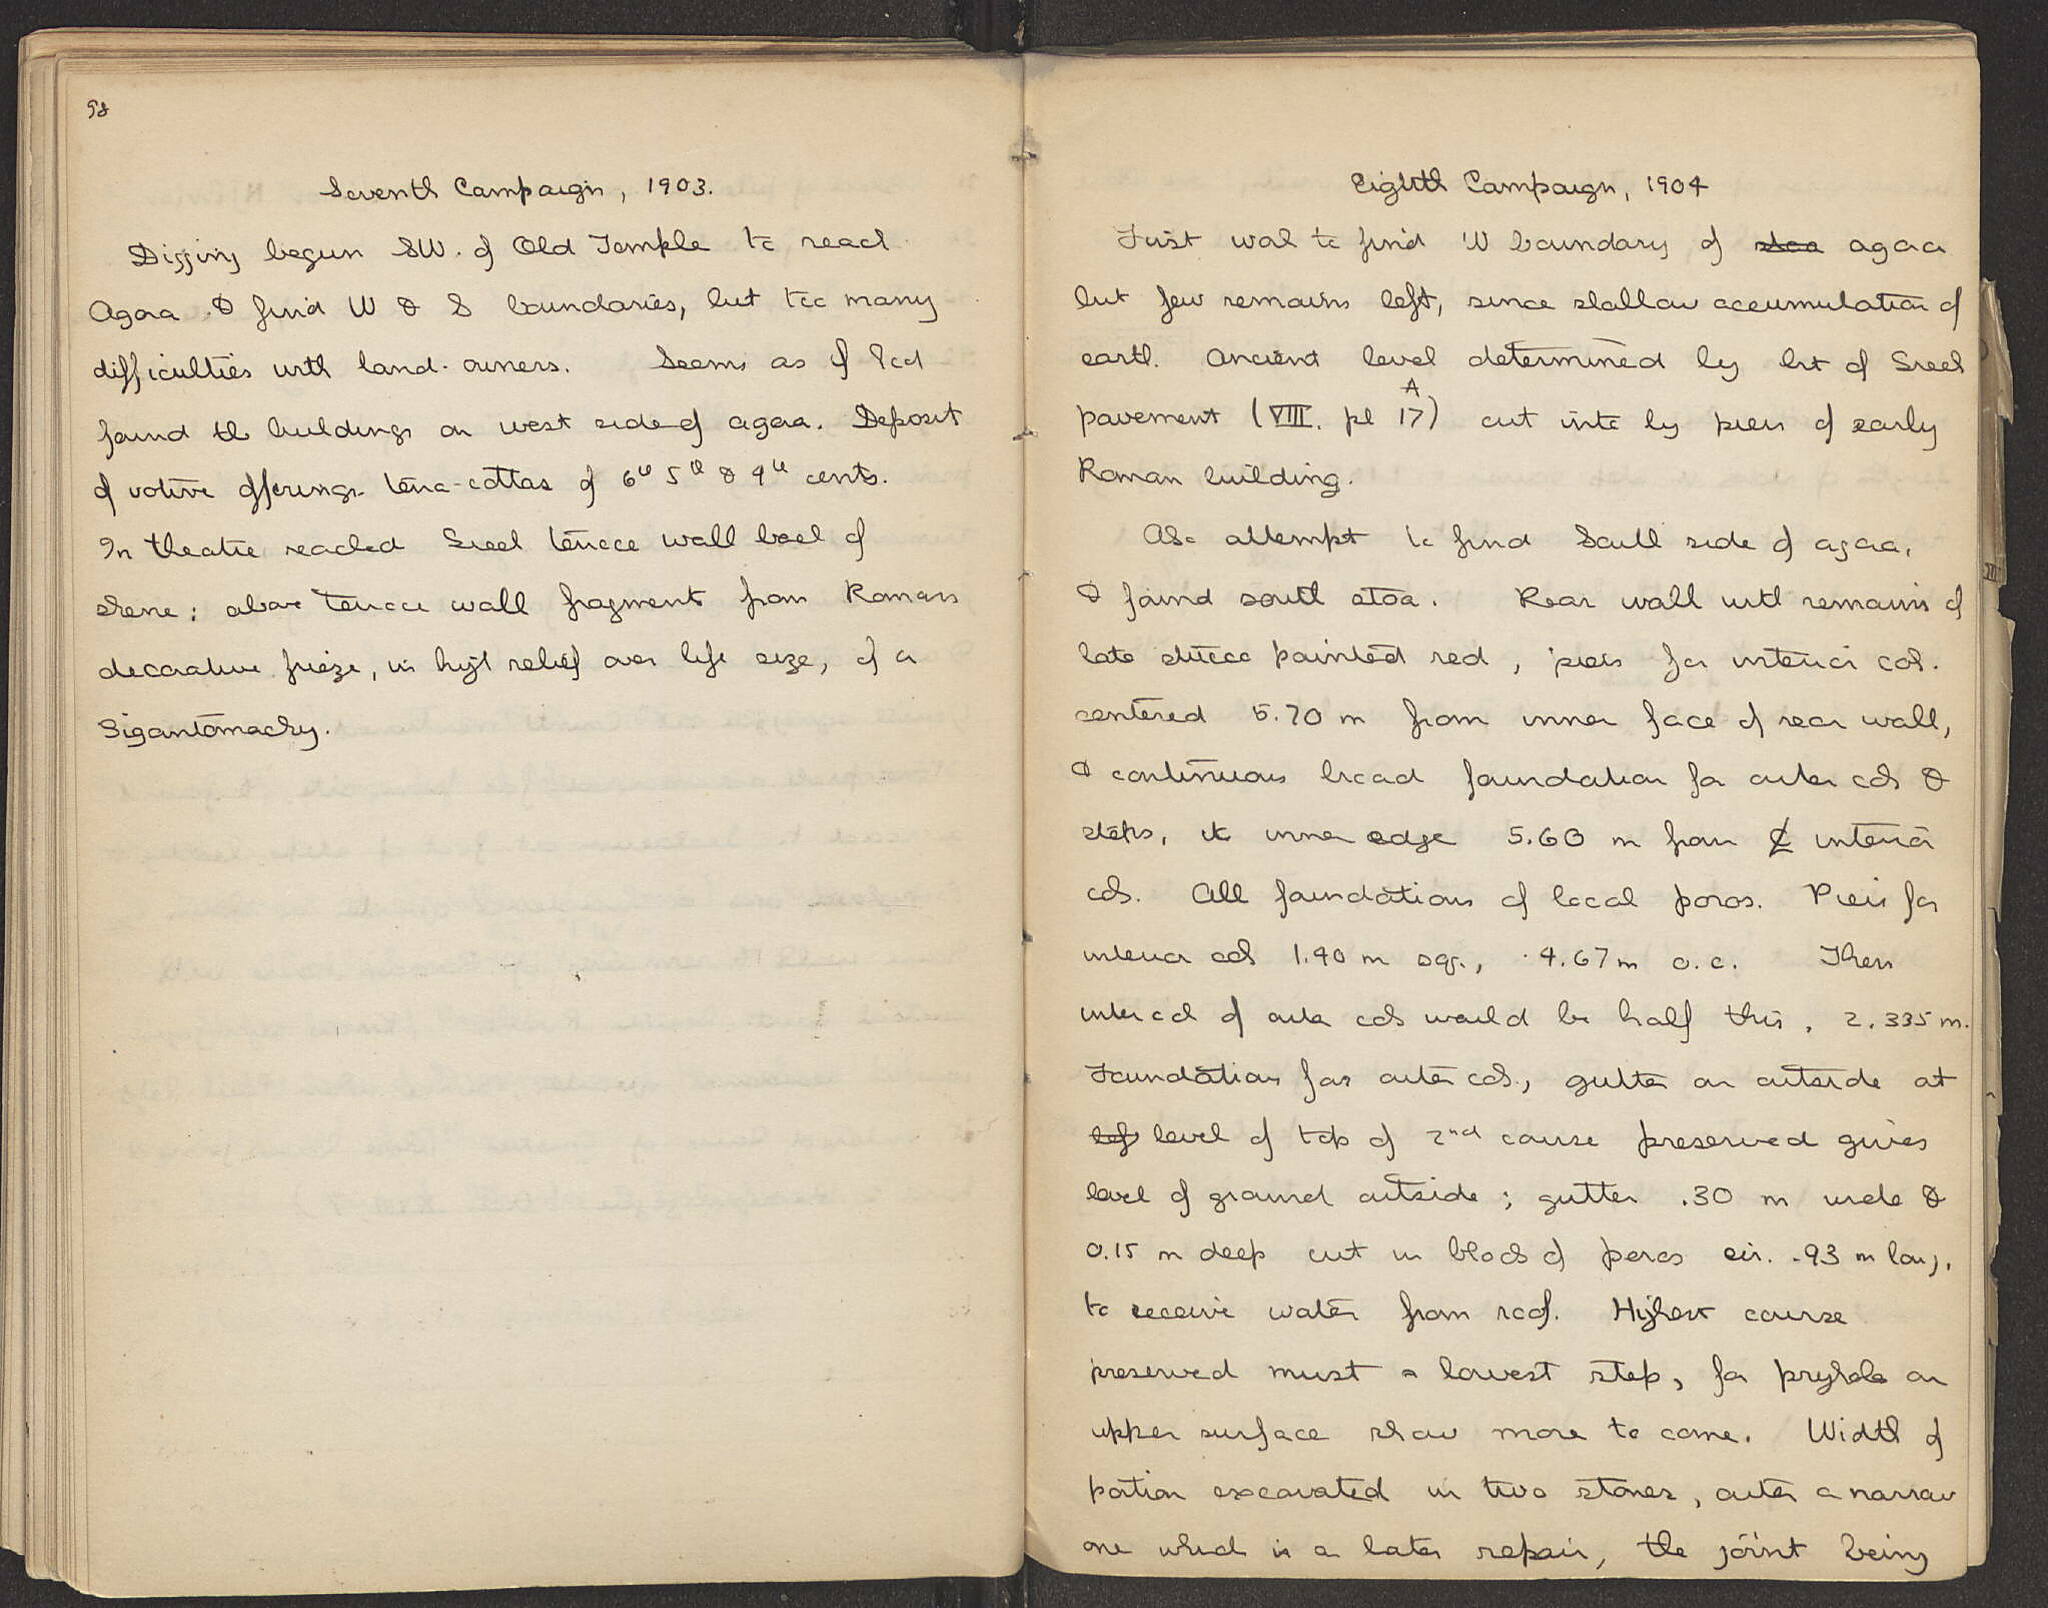 58
Seventh Campaign, 1903.
Digging begun SW. of Old Temple to reach
Agora & find W & S boundaries, but too many
difficulties with land-owners. Seems as if had
found the buildings on west side of agora. Deposit
of votive offerings terra-cottas of 6th 5th & 4th cents.
In theatre reached Greek terrace wall back of
skene; above terrace wall fragments from Roman
decorative frieze, in high relief over life size, of a
Gigantomachy.
Eighth Campaign, 1904
First was to find W boundary of stoa agora
but few remains left, since shallow accumulation of
earth. Ancient level determined by bit of Greek
pavement (VIII. pl 17A) cut into by piers of early
Roman building.
Also attempt to find South side of agora,
& found south stoa. Rear wall with remains of
late stucco painted red, piers for interior cols.
centered 5.70 m from inner face of rear wall,
& continuous broad foundation for outer cols &
steps, its inner edge 5.60 m from ℄ interior
cols. All foundations of local poros. Piers for
interior cols 1.40 m sq., 4.67 m o.c. Then
intercol of outer cols would be half this, 2.335 m.
Foundations for outer cols., gutter on outside at
lef level of top of 2nd course preserved gives
level of ground outside; gutter .30 m wide &
0.15 m deep cut in blocks of poros cir. .93 m long,
to receive water from roof. Highest course
preserved must = lowest step, for pryhole on
upper surface show more to come. Width of
portion excavated in two stones, outer a narrow
one which is a later repair, the joint being